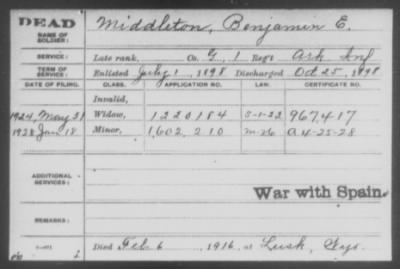 DEAD
NAME OF SOLDIER: Middleton, Benjamin E.
SERVICE: Late rank, Co. G, 1 Reg't Ark Inf
TERM OF SERVICE: Enlisted July 1, 1898 Discharged Oct 25, 1898
DATE OF FILING. CLASS. APPLICATION NO. LAW. CERTIFICATE NO.
Invalid,
1924, May 31 Widow, 1220184 967,417
1928 Jan 18 Minor, 1,602,210 A 4-25-28
ADDITIONAL SERVICES:
War with Spain.
REMARKS:
Died Feb 6, 1916, at Lusk,